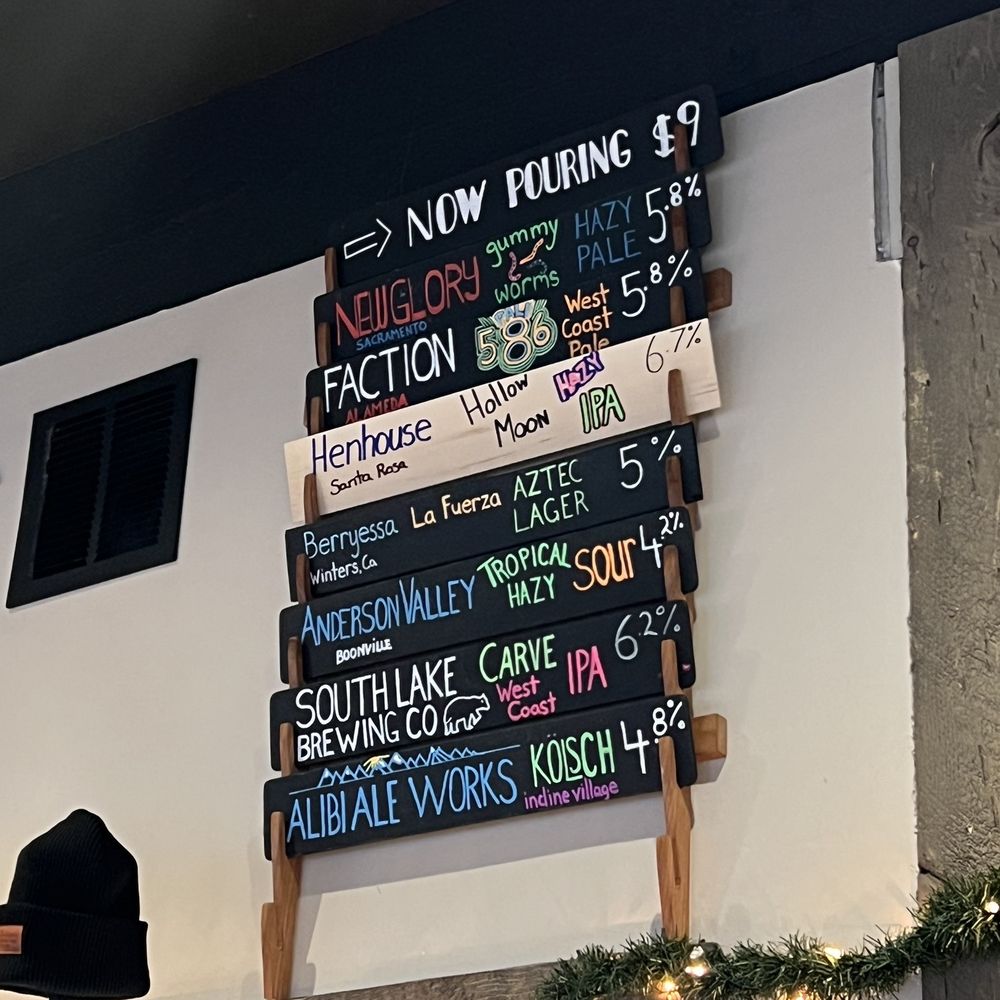 ⇒ NOW POURING $9
NEW GLORY gummy worms HAZY PALE 5.8%
SACRAMENTO
FACTION PALE 586 West Coast Pale 5.8%
ALAMEDA
Henhouse Hollow Moon HAZY IPA 6.7%
Santa Rosa
Berryessa La Fuerza AZTEC LAGER 5%
Winters, Ca
ANDERSON VALLEY TROPICAL HAZY SOUR 4.2%
BOONVILLE
SOUTH LAKE BREWING CO CARVE West Coast IPA 6.2%
ALIBI ALE WORKS KÖLSCH 4.8%
incline village